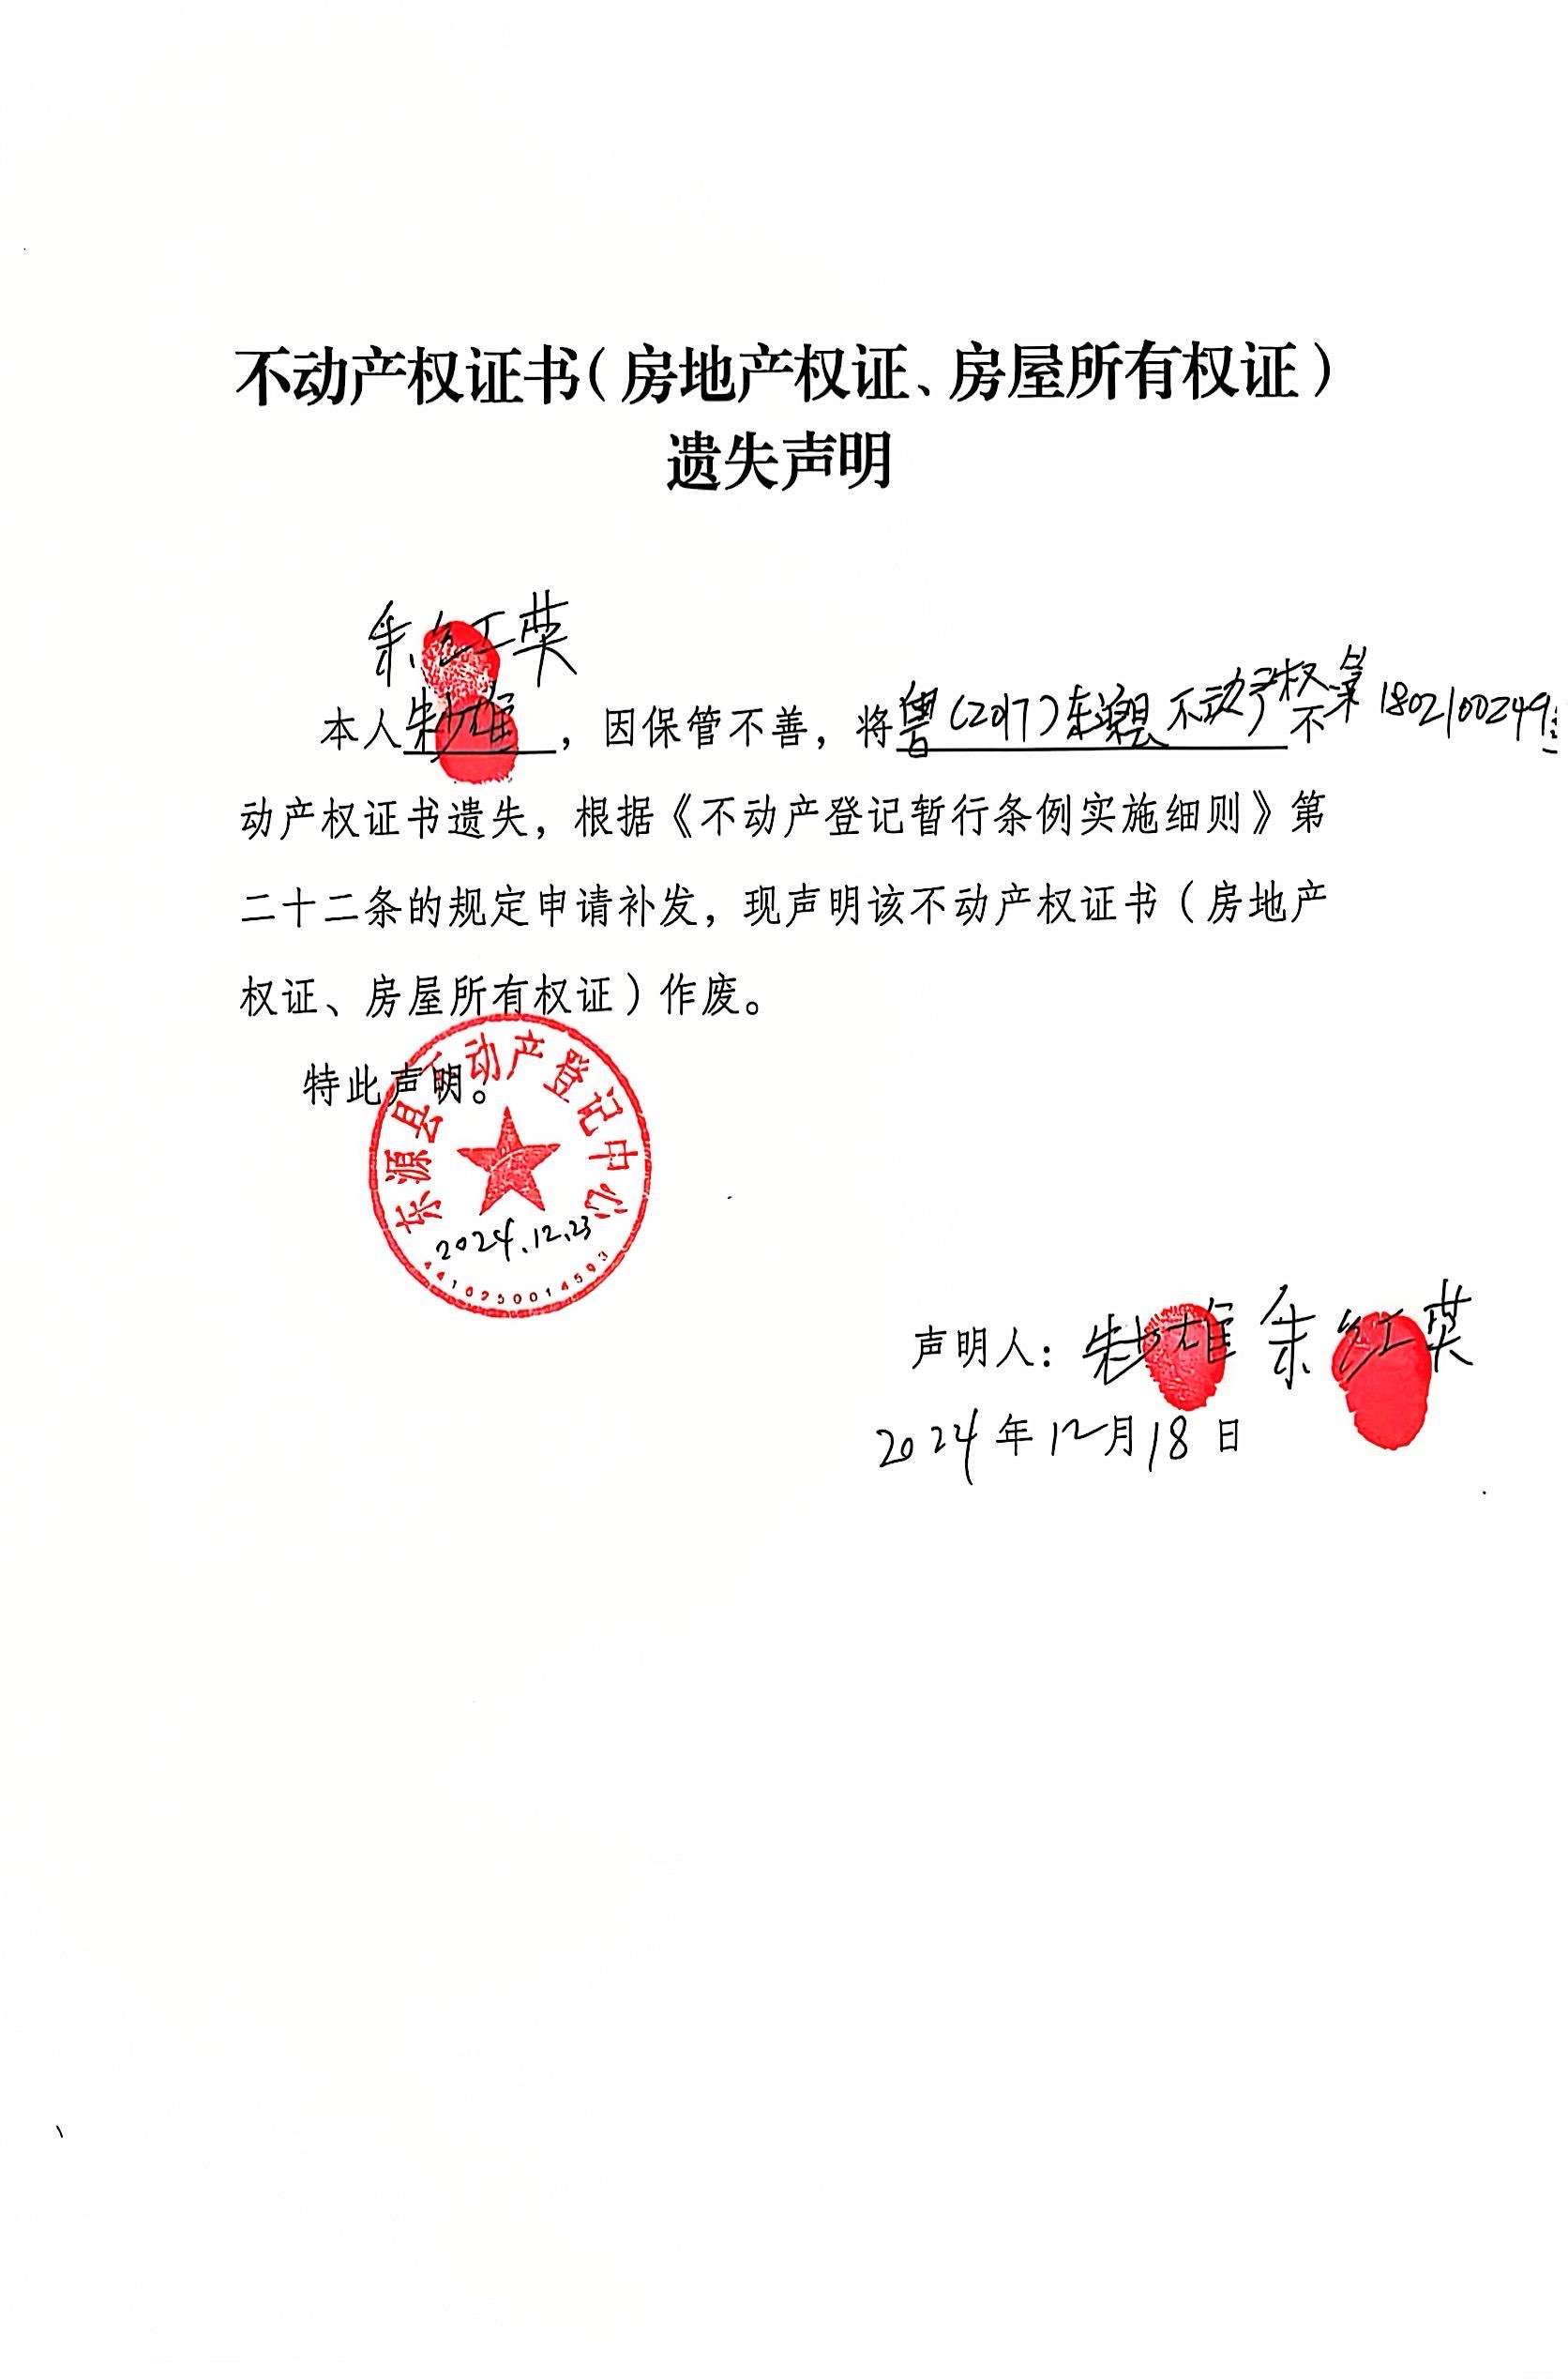 不动产权证书（房地产权证、房屋所有权证）
遗失声明
朱红英
本人朱少雄，因保管不善，将粤（2017）东源县不动产权第1802100249号不
动产权证书遗失，根据《不动产登记暂行条例实施细则》第
二十二条的规定申请补发，现声明该不动产权证书（房地产
权证、房屋所有权证）作废。
特此声明。
东源县不动产登记中心
2024.12.23
4416250014593
声明人：朱少雄 朱红英
2024年12月18日